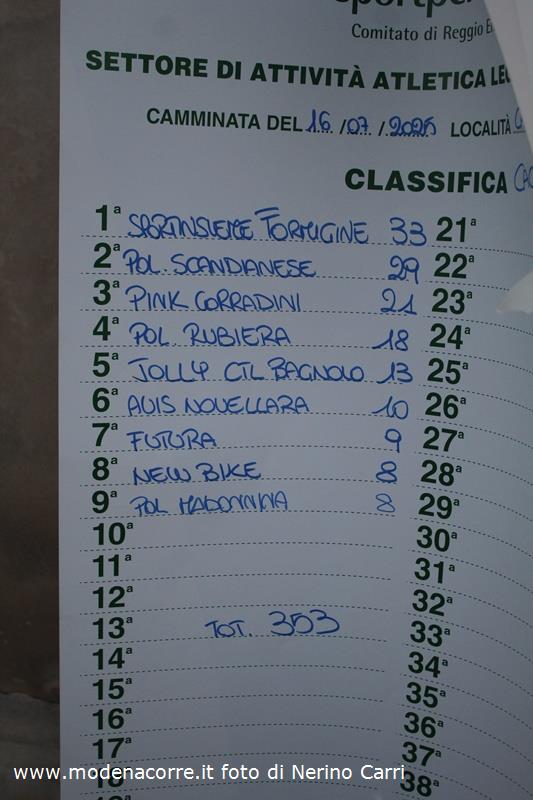 Comitato di Reggio
SETTORE DI ATTIVITÀ ATLETICA
CAMMINATA DEL 16 /07 /2025 LOCALITÀ
CLASSIFICA
1ª SPORTINSIEME FORMIGINE 33 21ª
2ª POL. SCANDIANESE 29 22ª
3ª PINK CORRADINI 21 23ª
4ª POL. RUBIERA 18 24ª
5ª JOLLY CTL BAGNOLO 13 25ª
6ª AVIS NOVELLARA 10 26ª
7ª FUTURA 9 27ª
8ª NEW BIKE 8 28ª
9ª POL MADONNINA 8 29ª
10ª 30ª
11ª 31ª
12ª 32ª
13ª TOT. 353 33ª
14ª 34ª
15ª 35ª
16ª 36ª
17ª 37ª
38ª
www.modenacorre.it foto di Nerino Carri